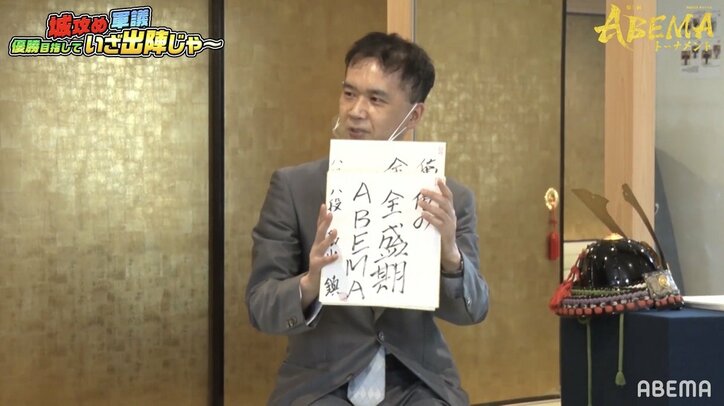 城攻め 軍議
優勝目指していざ出陣じゃ〜
ABEMA
トーナメント
俺の
全盛期
ABEMA
八段
ABEMA